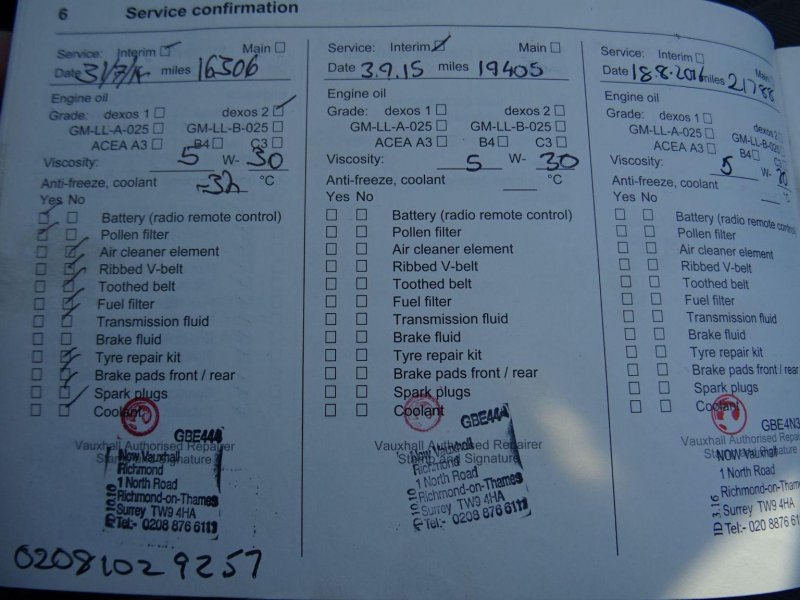 6 Service confirmation
Service: Interim Main
Date 31/7/14 miles 16306
Engine oil
Grade: dexos 1 dexos 2
GM-LL-A-025 GM-LL-B-025
ACEA A3 B4 C3
Viscosity: 5 W- 30
Anti-freeze, coolant -32 °C
Yes No
Battery (radio remote control)
Pollen filter
Air cleaner element
Ribbed V-belt
Toothed belt
Fuel filter
Transmission fluid
Brake fluid
Tyre repair kit
Brake pads front / rear
Spark plugs
Coolant
GBE444
Vauxhall Authorised Repairer
Stamp and Signature
Now Vauxhall
Richmond
1 North Road
Richmond-on-Thames
Surrey TW9 4HA
Tel:- 0208 876 6111
ID 10.10
02081029257
Service: Interim Main
Date 3.9.15 miles 19405
Engine oil
Grade: dexos 1 dexos 2
GM-LL-A-025 GM-LL-B-025
ACEA A3 B4 C3
Viscosity: 5 W- 30
Anti-freeze, coolant °C
Yes No
Battery (radio remote control)
Pollen filter
Air cleaner element
Ribbed V-belt
Toothed belt
Fuel filter
Transmission fluid
Brake fluid
Tyre repair kit
Brake pads front / rear
Spark plugs
Coolant
GBE444
Vauxhall Authorised Repairer
Stamp and Signature
Now Vauxhall
Richmond
1 North Road
Richmond-on-Thames
Surrey TW9 4HA
Tel:- 0208 876 6111
10.10
Service: Interim Main
Date 18.8.2016 miles 21788
Engine oil
Grade: dexos 1 dexos 2
GM-LL-A-025 GM-LL-B-025
ACEA A3 B4 C3
Viscosity: 5 W- 30
Anti-freeze, coolant °C
Yes No
Battery (radio remote control)
Pollen filter
Air cleaner element
Ribbed V-belt
Toothed belt
Fuel filter
Transmission fluid
Brake fluid
Tyre repair kit
Brake pads front / rear
Spark plugs
Coolant
GBE4N3
Vauxhall Authorised Repair
Signature
NOW Vauxhall
1 North Road
Richmond-on-Tham
Surrey TW9 4HA
Tel:- 020 8876 6
ID 3.16